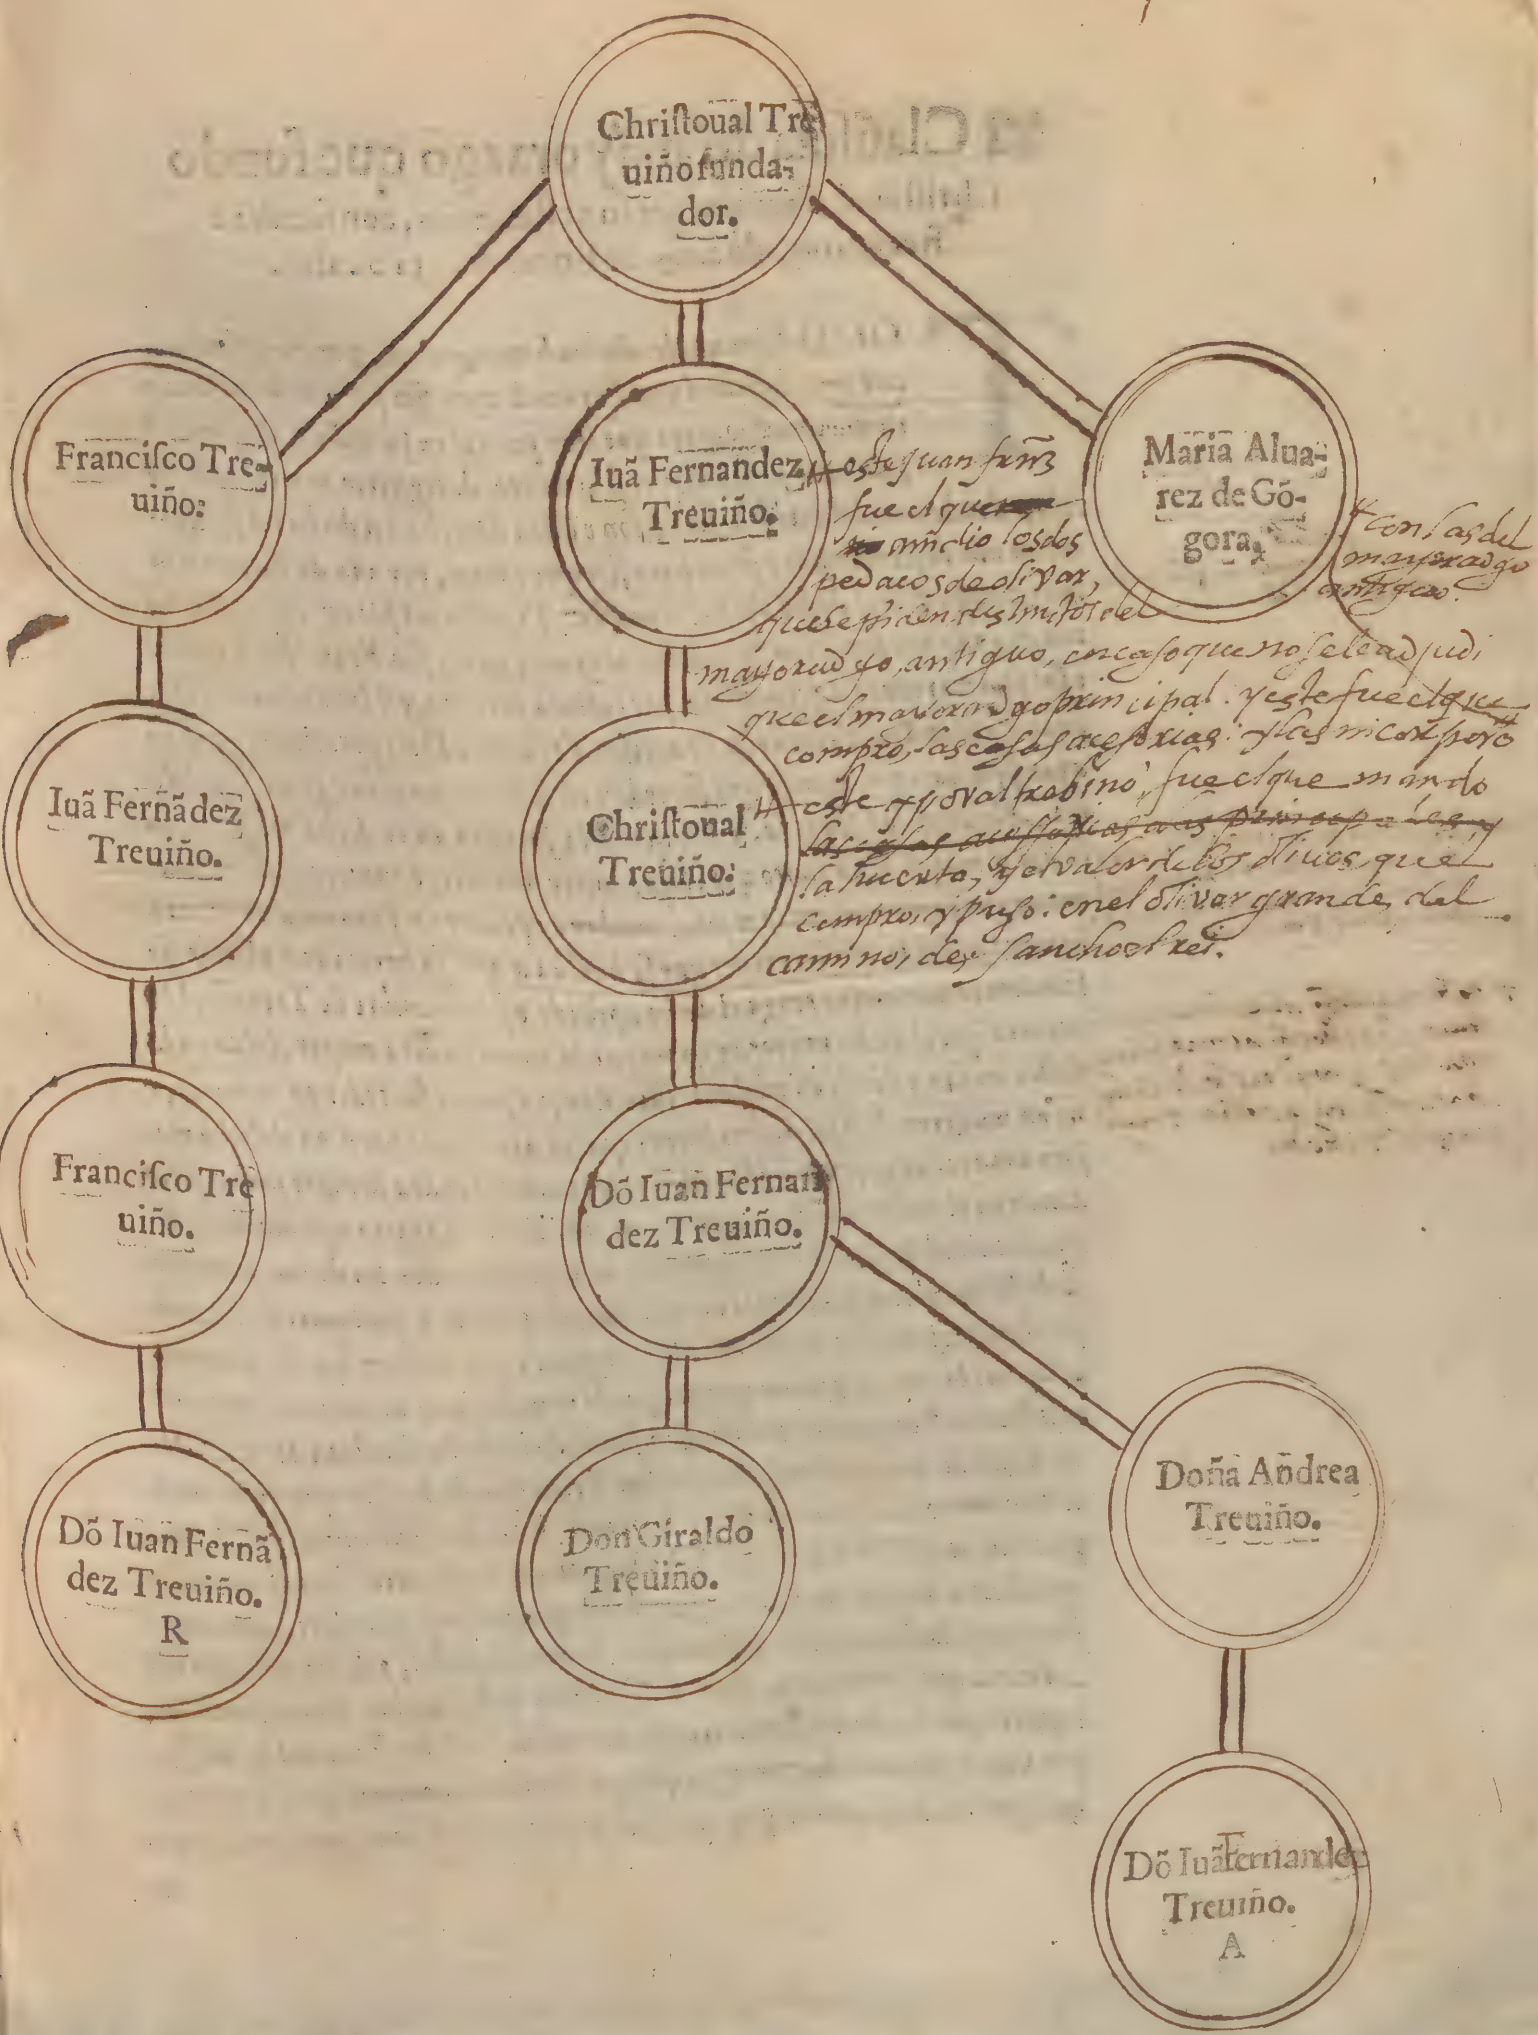 Chriſtoual Tre
uiño funda-
dor.
Franciſco Tre-
uiño.
Iuã Fernandez
Treuiño.
Maria Alua-
rez de Gõ-
gora.
este juan frñz
fue el que
añidio los dos
pedacos de olivar,
que se piden distintos del
mayoradgo, antiguo, en caso que no sele adjudi
que el mayoradgo principal. y este fue el que
compro, las casas acesorias: y las incorporo
con las del
mayoradgo
antiguo.
Iuã Fernãdez
Treuiño.
Chriſtoual
Treuiño.
este xpoval trebiño, fue el que mando
las casas acessorias a las principales y
la huerta, y el valor de los olivos, que
compro, y puso: en el olivar grande, del
camino, de Sancho el rei.
Franciſco Tre
uiño.
Dõ Iuan Fernan
dez Treuiño.
Dõ Iuan Fernã
dez Treuiño.
R
Don Giraldo
Treuiño.
Doña Andrea
Treuiño.
Dõ Iuã Fernandez
Treuiño.
A